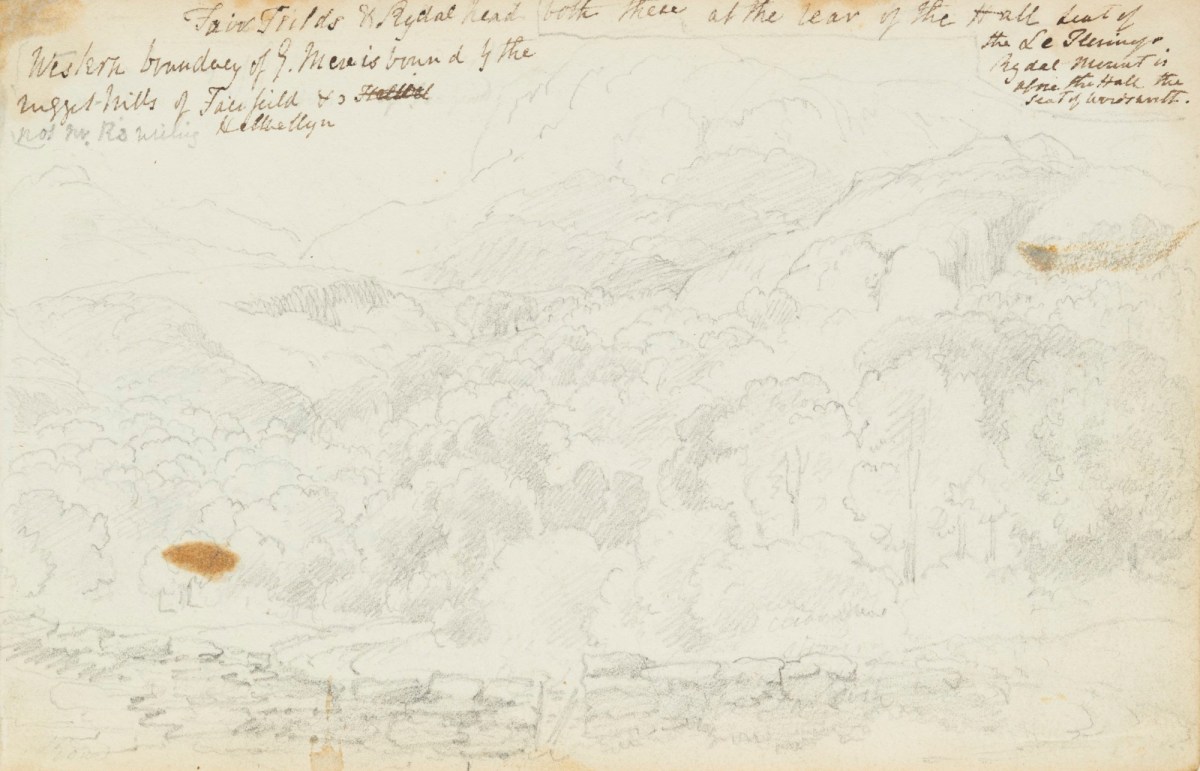 Fair Fields & Rydal head both these at the rear of the Hall seat of
the Le Flemings.
Rydal Mount is
above the Hall the
seat of Wordsworth.
Western boundary of G. Mere is bound by the
rugged hills of Fairfield &
Hellvellyn
not Mr. R's writing